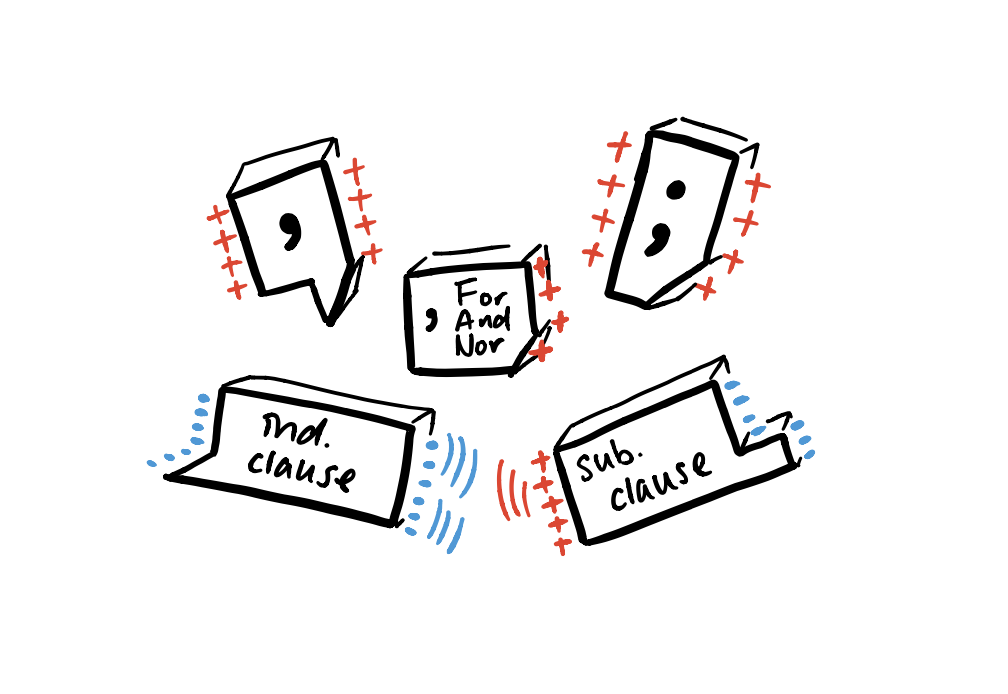 ,
;
, For
And
Nor
ind.
clause
sub.
clause